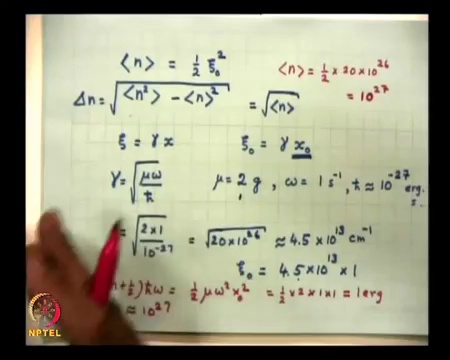 ⟨n⟩ = 1/2 ξ₀²
⟨n⟩ = 1/2 × 20 × 10²⁶
= 10²⁷
Δn = √(⟨n²⟩ − ⟨n⟩²) = √⟨n⟩
ξ = γ x ξ₀ = γ x₀
γ = √(μω/ħ) μ = 2 g , ω = 1 s⁻¹ , ħ ≈ 10⁻²⁷ erg. s.
= √(2×1/10⁻²⁷) = √(20×10²⁶) ≈ 4.5 × 10¹³ cm⁻¹
ξ₀ = 4.5 × 10¹³ × 1
n + 1/2) ħω = 1/2 μω² x₀² = 1/2 × 2 × 1 × 1 = 1 erg
≈ 10²⁷
NPTEL